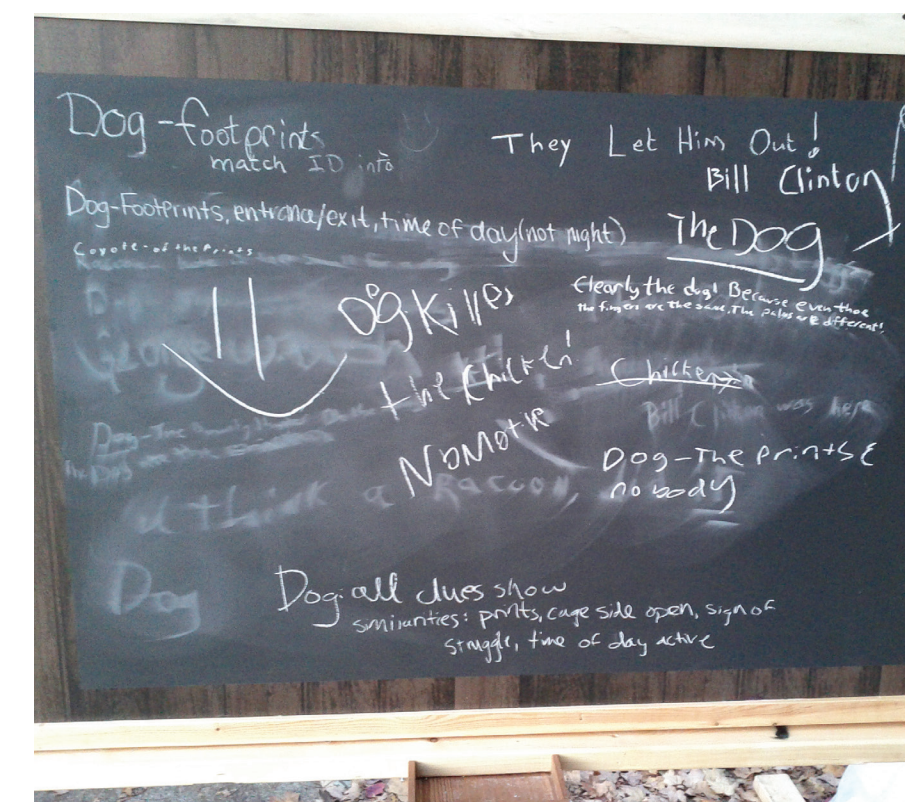 Dog-footprints
match ID info
They Let Him Out!
Bill Clinton
Dog-Footprints, entrance/exit, time of day (not night)
The DOG
Coyote-of the Prints
Clearly the dog! Because even thoe
the fingers are the same, The palms are different!
Dog Killes
the Chicken!
No Motive
Chicken
Bill Clinton was here
Dog-The prints &
no body
I think a Racoon,
Dog
Dog: all clues show
similarities: prints, cage side open, sign of
struggle, time of day active